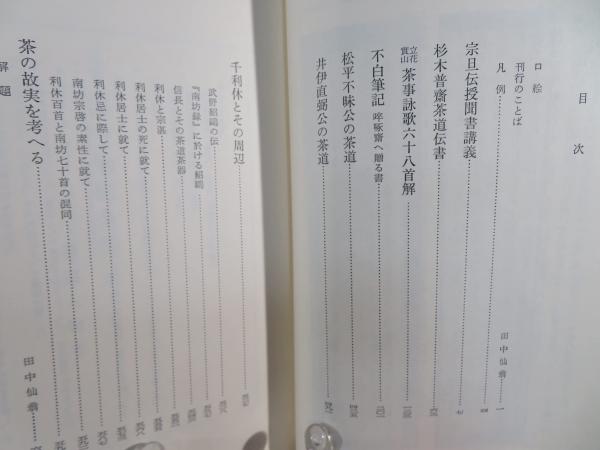 目次
口絵
刊行のことば
凡例 田中仙翁 一
宗旦伝授聞書講義
杉木普齋茶道伝書
立花実山 茶事詠歌六十八首解
不白筆記 啐啄齋へ贈る書
松平不昧公の茶道
井伊直弼公の茶道
千利休とその周辺
武野紹鷗の伝
『南坊録』に於ける紹鷗
信長とその茶道茶器
利休と宗湛
利休居士の死に就て
利休居士に就て
利休忌に際して
南坊宗啓の素性に就て
利休百首と南坊七十首の混同
茶の故実を考へる
解題 田中仙翁